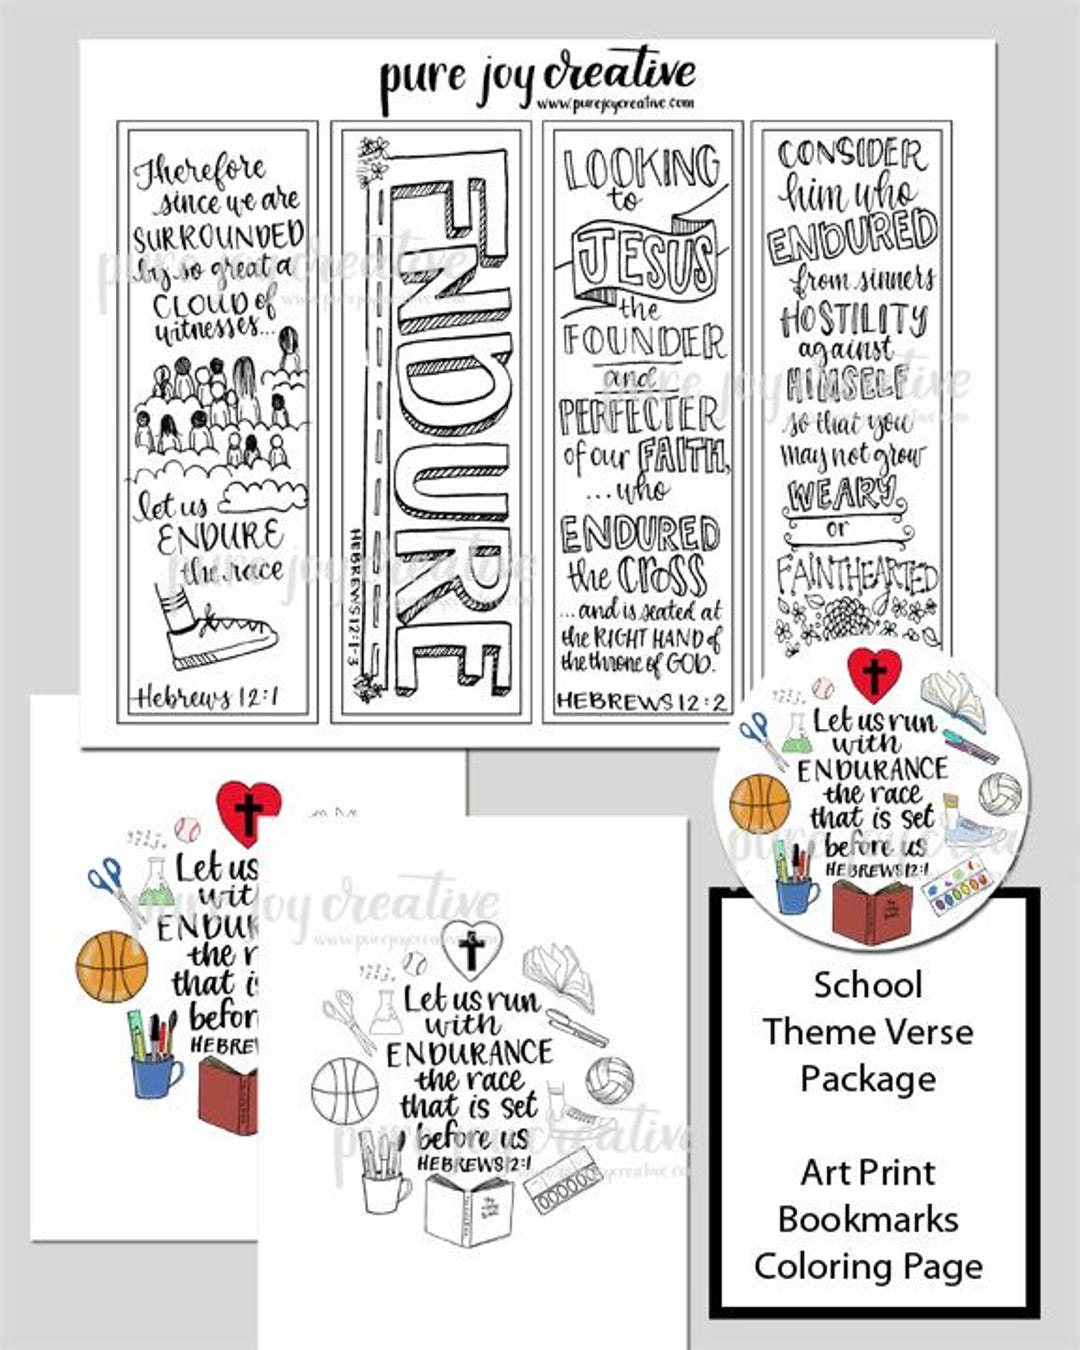 pure joy creative
www.purejoycreative.com
Therefore
since we are
SURROUNDED
by so great a
CLOUD of
witnesses...
let us
ENDURE
the race
Hebrews 12:1
ENDURE
HEBREWS 12:1-3
LOOKING
to
JESUS
the
FOUNDER
and
PERFECTER
of our FAITH,
...who
ENDURED
the CROSS
...and is seated at
the RIGHT HAND of
the throne of GOD.
HEBREWS 12:2
CONSIDER
him who
ENDURED
from sinners
HOSTILITY
against
HIMSELF
so that you
may not grow
WEARY
or
FAINTHEARTED
Let us run
with
ENDURANCE
the race
that is set
before us
HEBREWS 12:1
Let us
wit
ENDUR
the r
that i
befor
HEBRE
Let us run
with
ENDURANCE
the race
that is set
before us
HEBREWS 12:1
School
Theme Verse
Package
Art Print
Bookmarks
Coloring Page
pure joy creative
www.purejoycreative.com
pure joy creative
pure joy creative
pure joy creative
www.purejoycreative.com
pure joy creative
pure joy crea